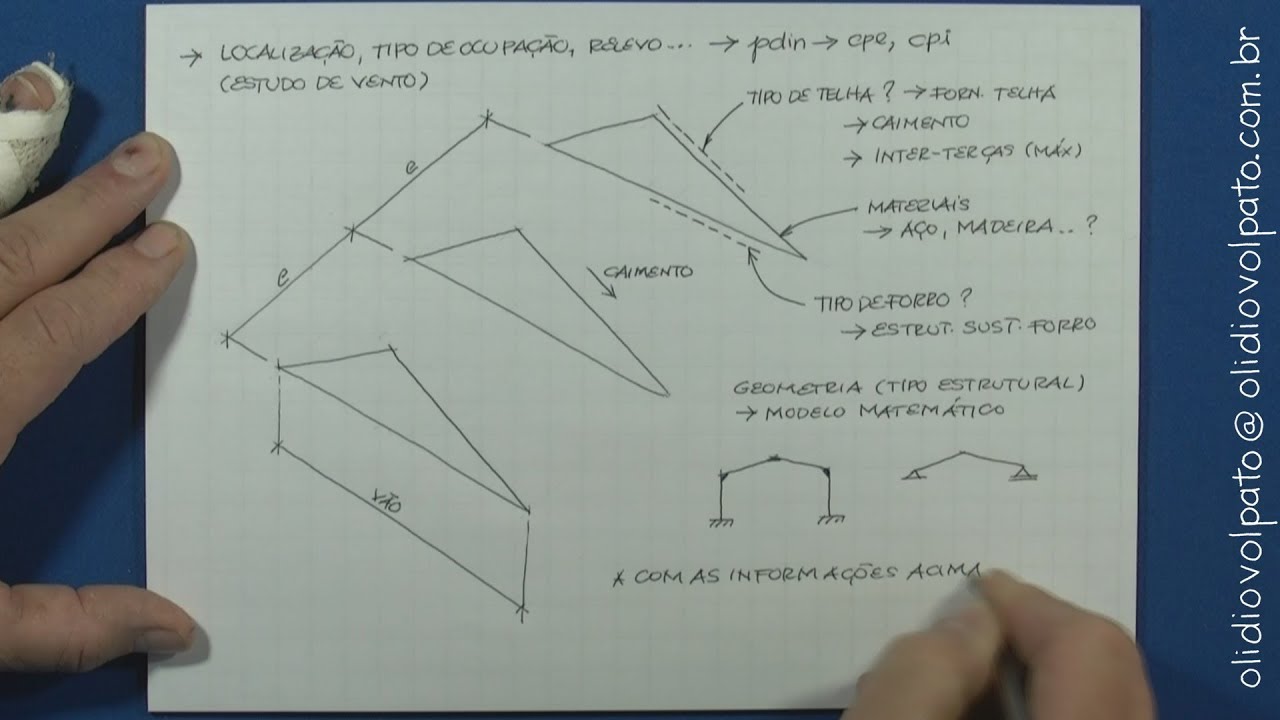 → LOCALIZAÇÃO, TIPO DE OCUPAÇÃO, RELEVO... → pdin → cpe, cpi
(ESTUDO DE VENTO)
TIPO DE TELHA? → FORN. TELHA
→ CAIMENTO
→ INTER-TERÇAS (MÁX)
MATERIAIS
→ AÇO, MADEIRA..?
e
e
CAIMENTO
TIPO DE FORRO?
→ ESTRUT. SUST. FORRO
GEOMETRIA (TIPO ESTRUTURAL)
→ MODELO MATEMÁTICO
VÃO
* COM AS INFORMAÇÕES ACIMA
olidiovolpato@olidiovolpato.com.br